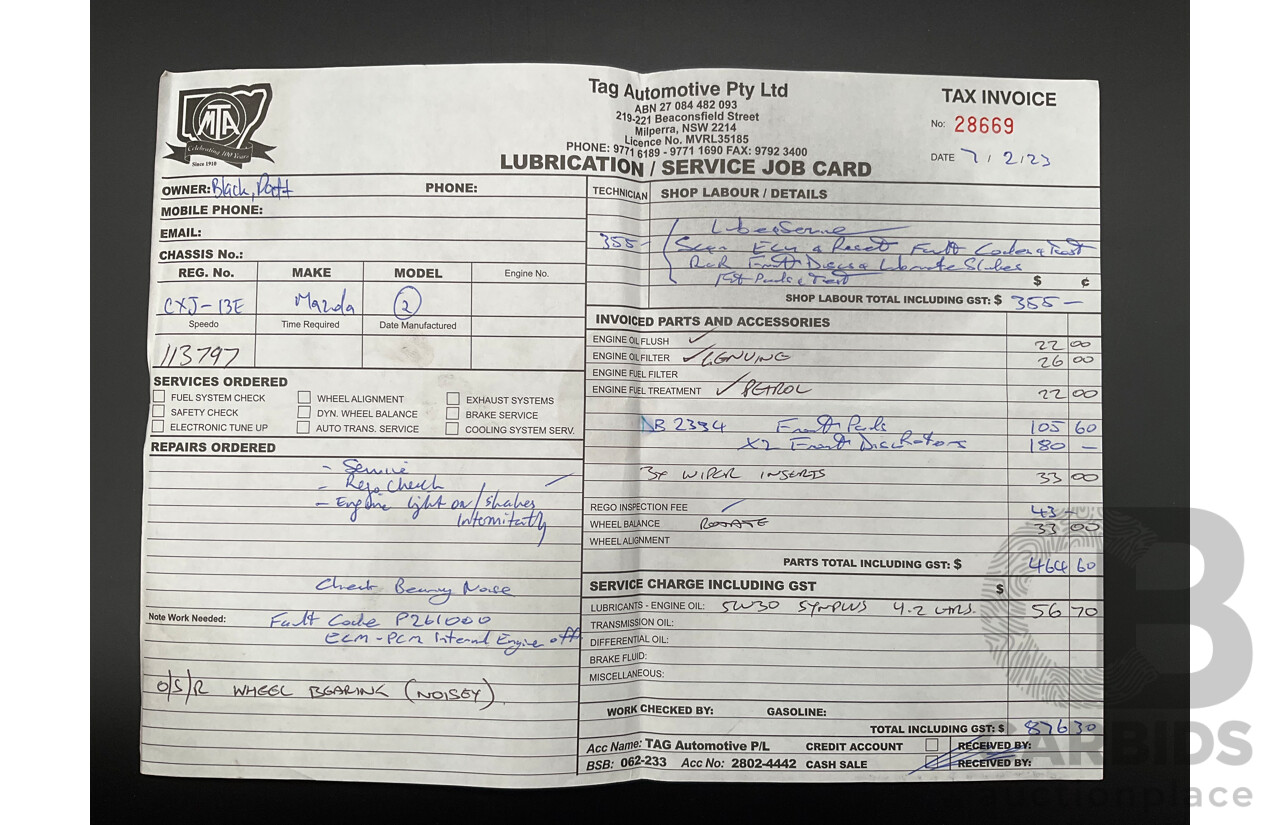 MTA
Celebrating 100 Years
Since 1910
Tag Automotive Pty Ltd
ABN 27 084 482 093
219-221 Beaconsfield Street
Milperra, NSW 2214
Licence No. MVRL35185
PHONE: 9771 6189 - 9771 1690 FAX: 9792 3400
LUBRICATION / SERVICE JOB CARD
TAX INVOICE
No: 28669
DATE 7/2/23
OWNER: Black, PHONE:
MOBILE PHONE:
EMAIL:
CHASSIS No.:
REG. No. MAKE MODEL Engine No.
CXJ-13E Mazda 2
Speedo Time Required Date Manufactured
113797
SERVICES ORDERED
FUEL SYSTEM CHECK WHEEL ALIGNMENT EXHAUST SYSTEMS
SAFETY CHECK DYN. WHEEL BALANCE BRAKE SERVICE
ELECTRONIC TUNE UP AUTO TRANS. SERVICE COOLING SYSTEM SERV.
REPAIRS ORDERED
- Service
- Rego Check
- Engine light on/shakes
Intermitantly
Check Bearing Noise
Note Work Needed: Fault Code P261000
ECM-PCM Internal Engine off
O/S/R WHEEL BEARING (NOISEY)
TECHNICIAN SHOP LABOUR / DETAILS
Lube Service
355- Scan ECU & Reset Fault Codes & Test
R&R Front Discs & Lubricate Slides
Pads & Test
$ ¢
SHOP LABOUR TOTAL INCLUDING GST: $ 355 -
INVOICED PARTS AND ACCESSORIES
ENGINE OIL FLUSH ✓ 22 00
ENGINE OIL FILTER ✓ GENUINE 26 00
ENGINE FUEL FILTER
ENGINE FUEL TREATMENT ✓ PETROL 22 00
DB 2334 Front Pads 105 60
X2 Front Disc Rotors 180 -
3x WIPER INSERTS 33 00
REGO INSPECTION FEE 43 -
WHEEL BALANCE ROTATE 33 00
WHEEL ALIGNMENT
PARTS TOTAL INCLUDING GST: $ 464 60
SERVICE CHARGE INCLUDING GST $
LUBRICANTS - ENGINE OIL: 5W30 SYNPLUS 4.2 LTRS. 56 70
TRANSMISSION OIL:
DIFFERENTIAL OIL:
BRAKE FLUID:
MISCELLANEOUS:
WORK CHECKED BY: GASOLINE:
TOTAL INCLUDING GST: $ 876 30
Acc Name: TAG Automotive P/L CREDIT ACCOUNT RECEIVED BY:
BSB: 062-233 Acc No: 2802-4442 CASH SALE RECEIVED BY:
CARBIDS
auctionplace